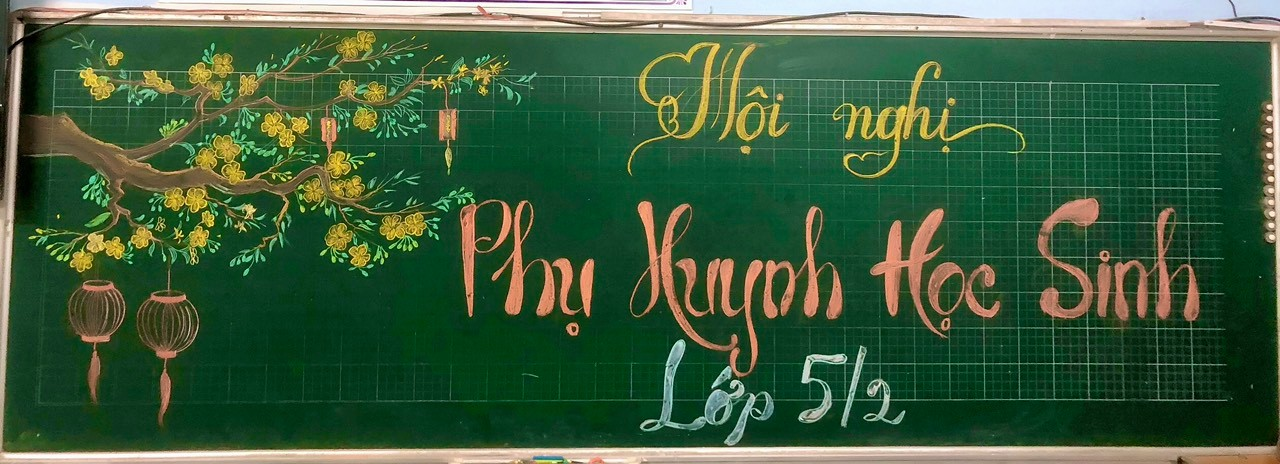 Hội nghị
Phụ Huynh Học Sinh
Lớp 5/2